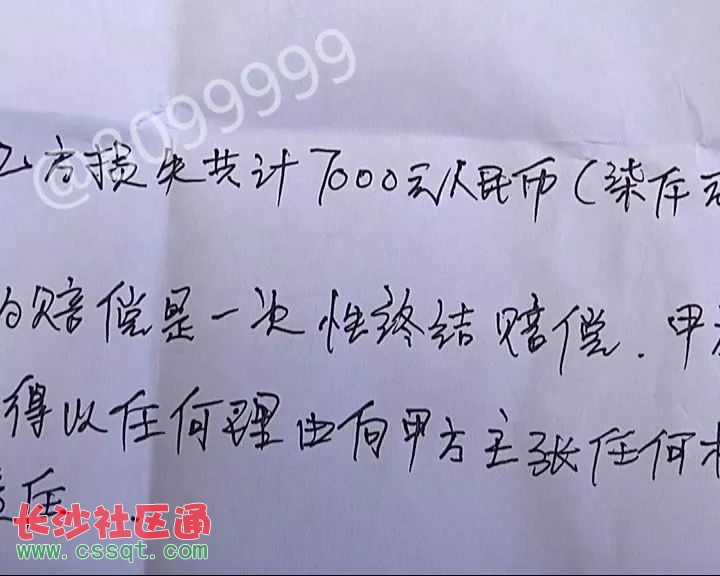 @8099999
乙方损失共计7000元人民币(柒仟元
的赔偿是一次性终结赔偿.甲方
得以任何理由向甲方主张任何权
责任.
长沙社区通
www.cssqt.com